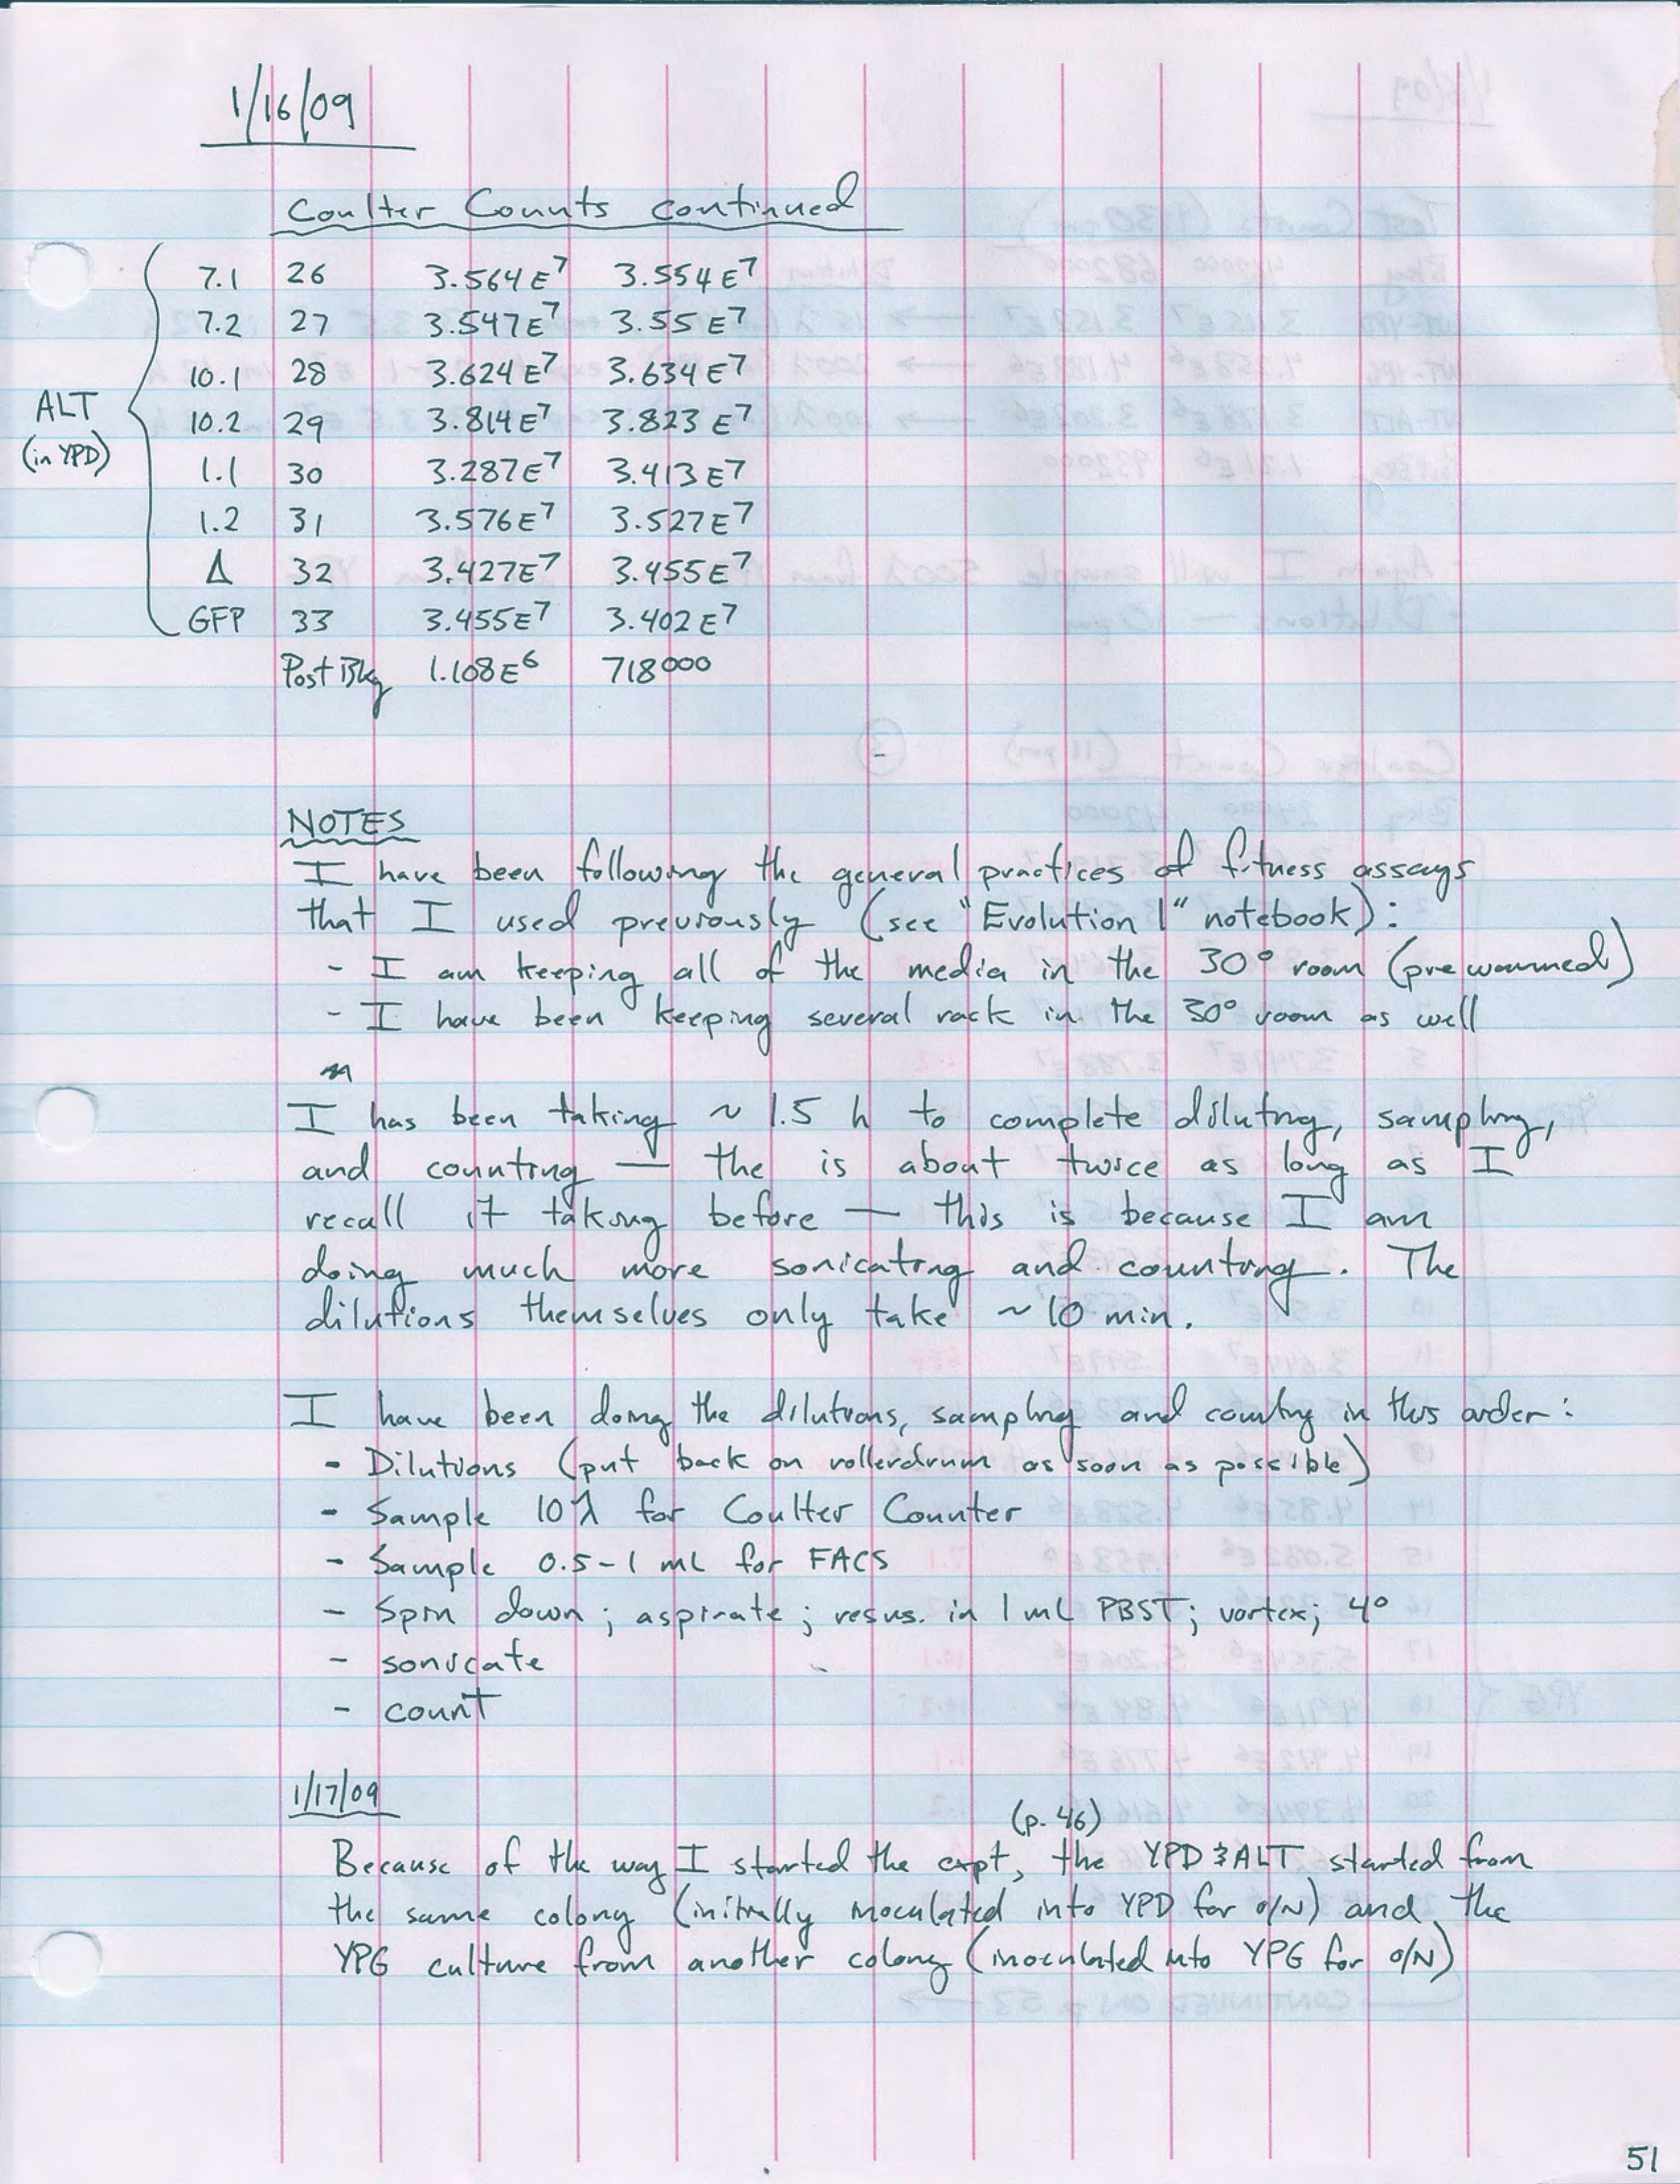 1/16/09
Coulter Counts continued
7.1 26 3.564E7 3.554E7
7.2 27 3.547E7 3.55E7
10.1 28 3.624E7 3.634E7
ALT
10.2 29 3.814E7 3.823E7
(in YPD)
1.1 30 3.287E7 3.413E7
1.2 31 3.576E7 3.527E7
Δ 32 3.427E7 3.455E7
GFP 33 3.455E7 3.402E7
Post Bkg 1.108E6 718000
NOTES
I have been following the general practices of fitness assays
that I used previously (see "Evolution 1" notebook):
- I am keeping all of the media in the 30° room (prewarmed)
- I have been keeping several rack in the 30° room as well
I has been taking ~ 1.5 h to complete diluting, sampling,
and counting — the is about twice as long as I
recall it taking before — this is because I am
doing much more sonicating and counting. The
dilutions themselves only take ~10 min.
I have been doing the dilutions, sampling and counting in this order:
- Dilutions (put back on rollerdrum as soon as possible)
- Sample 10λ for Coulter Counter
- Sample 0.5-1 mL for FACS
- Spin down; aspirate; resus. in 1 mL PBST; vortex; 4°
- sonicate
- count
1/17/09
(p. 46)
Because of the way I started the expt, the YPD & ALT started from
the same colony (initially inoculated into YPD for o/N) and the
YPG culture from another colony (inoculated into YPG for o/N)
51